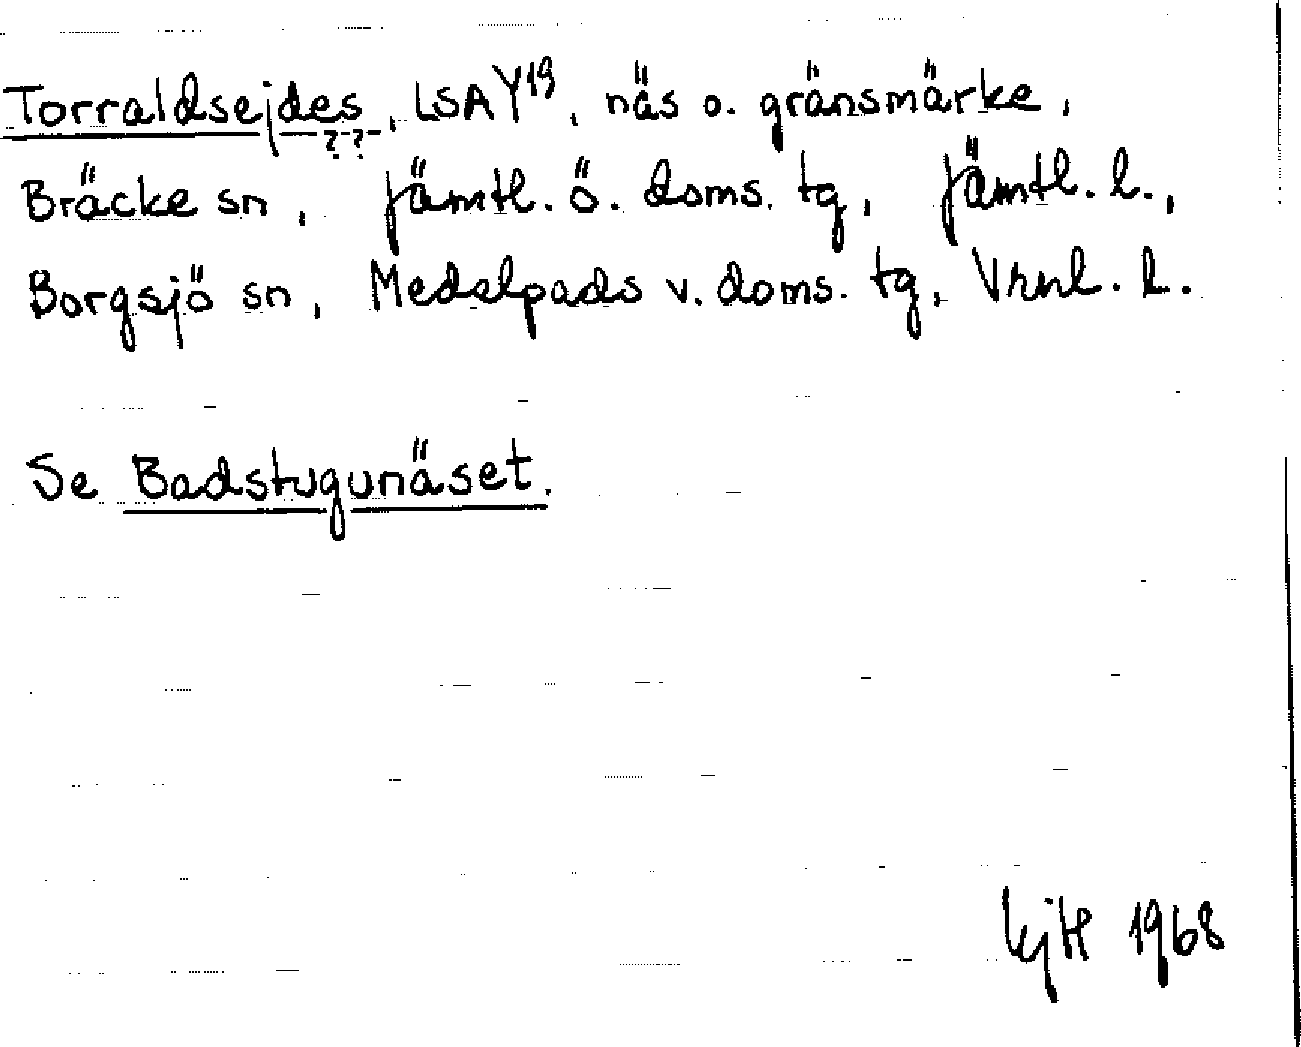 Torraldsejdes, LSA Y19, näs o. gränsmärke,
? ?
Bräcke sn, Jämtl. ö. doms. tg, Jämtl. l.,
Borgsjö sn, Medelpads v. doms. tg, Vrnl. l.
Se Badstugunäset.
1968